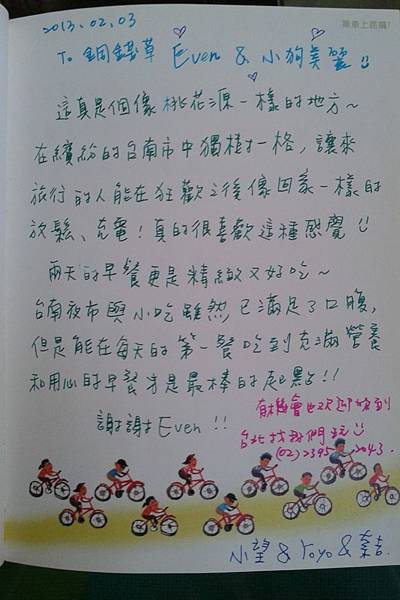 騎車上路囉!
2013.02.03
To 銅錢草 Even & 小狗美瑩
這真是個像桃花源一樣的地方~
在繽紛的台南市中獨樹一格,讓來
旅行的人能在狂歡之後像回家一樣的
放鬆、充電!真的很喜歡這種感覺
兩天的早餐更是精緻又好吃~
台南夜市與小吃雖然已滿足了口腹,
但是能在每天的第一餐吃到充滿營養
和用心的早餐才是最棒的起點!!
謝謝Even!!
有機會也歡迎你到
台北找我們玩
(02)2395-2043.
小望 & YoYo & 奈吉.